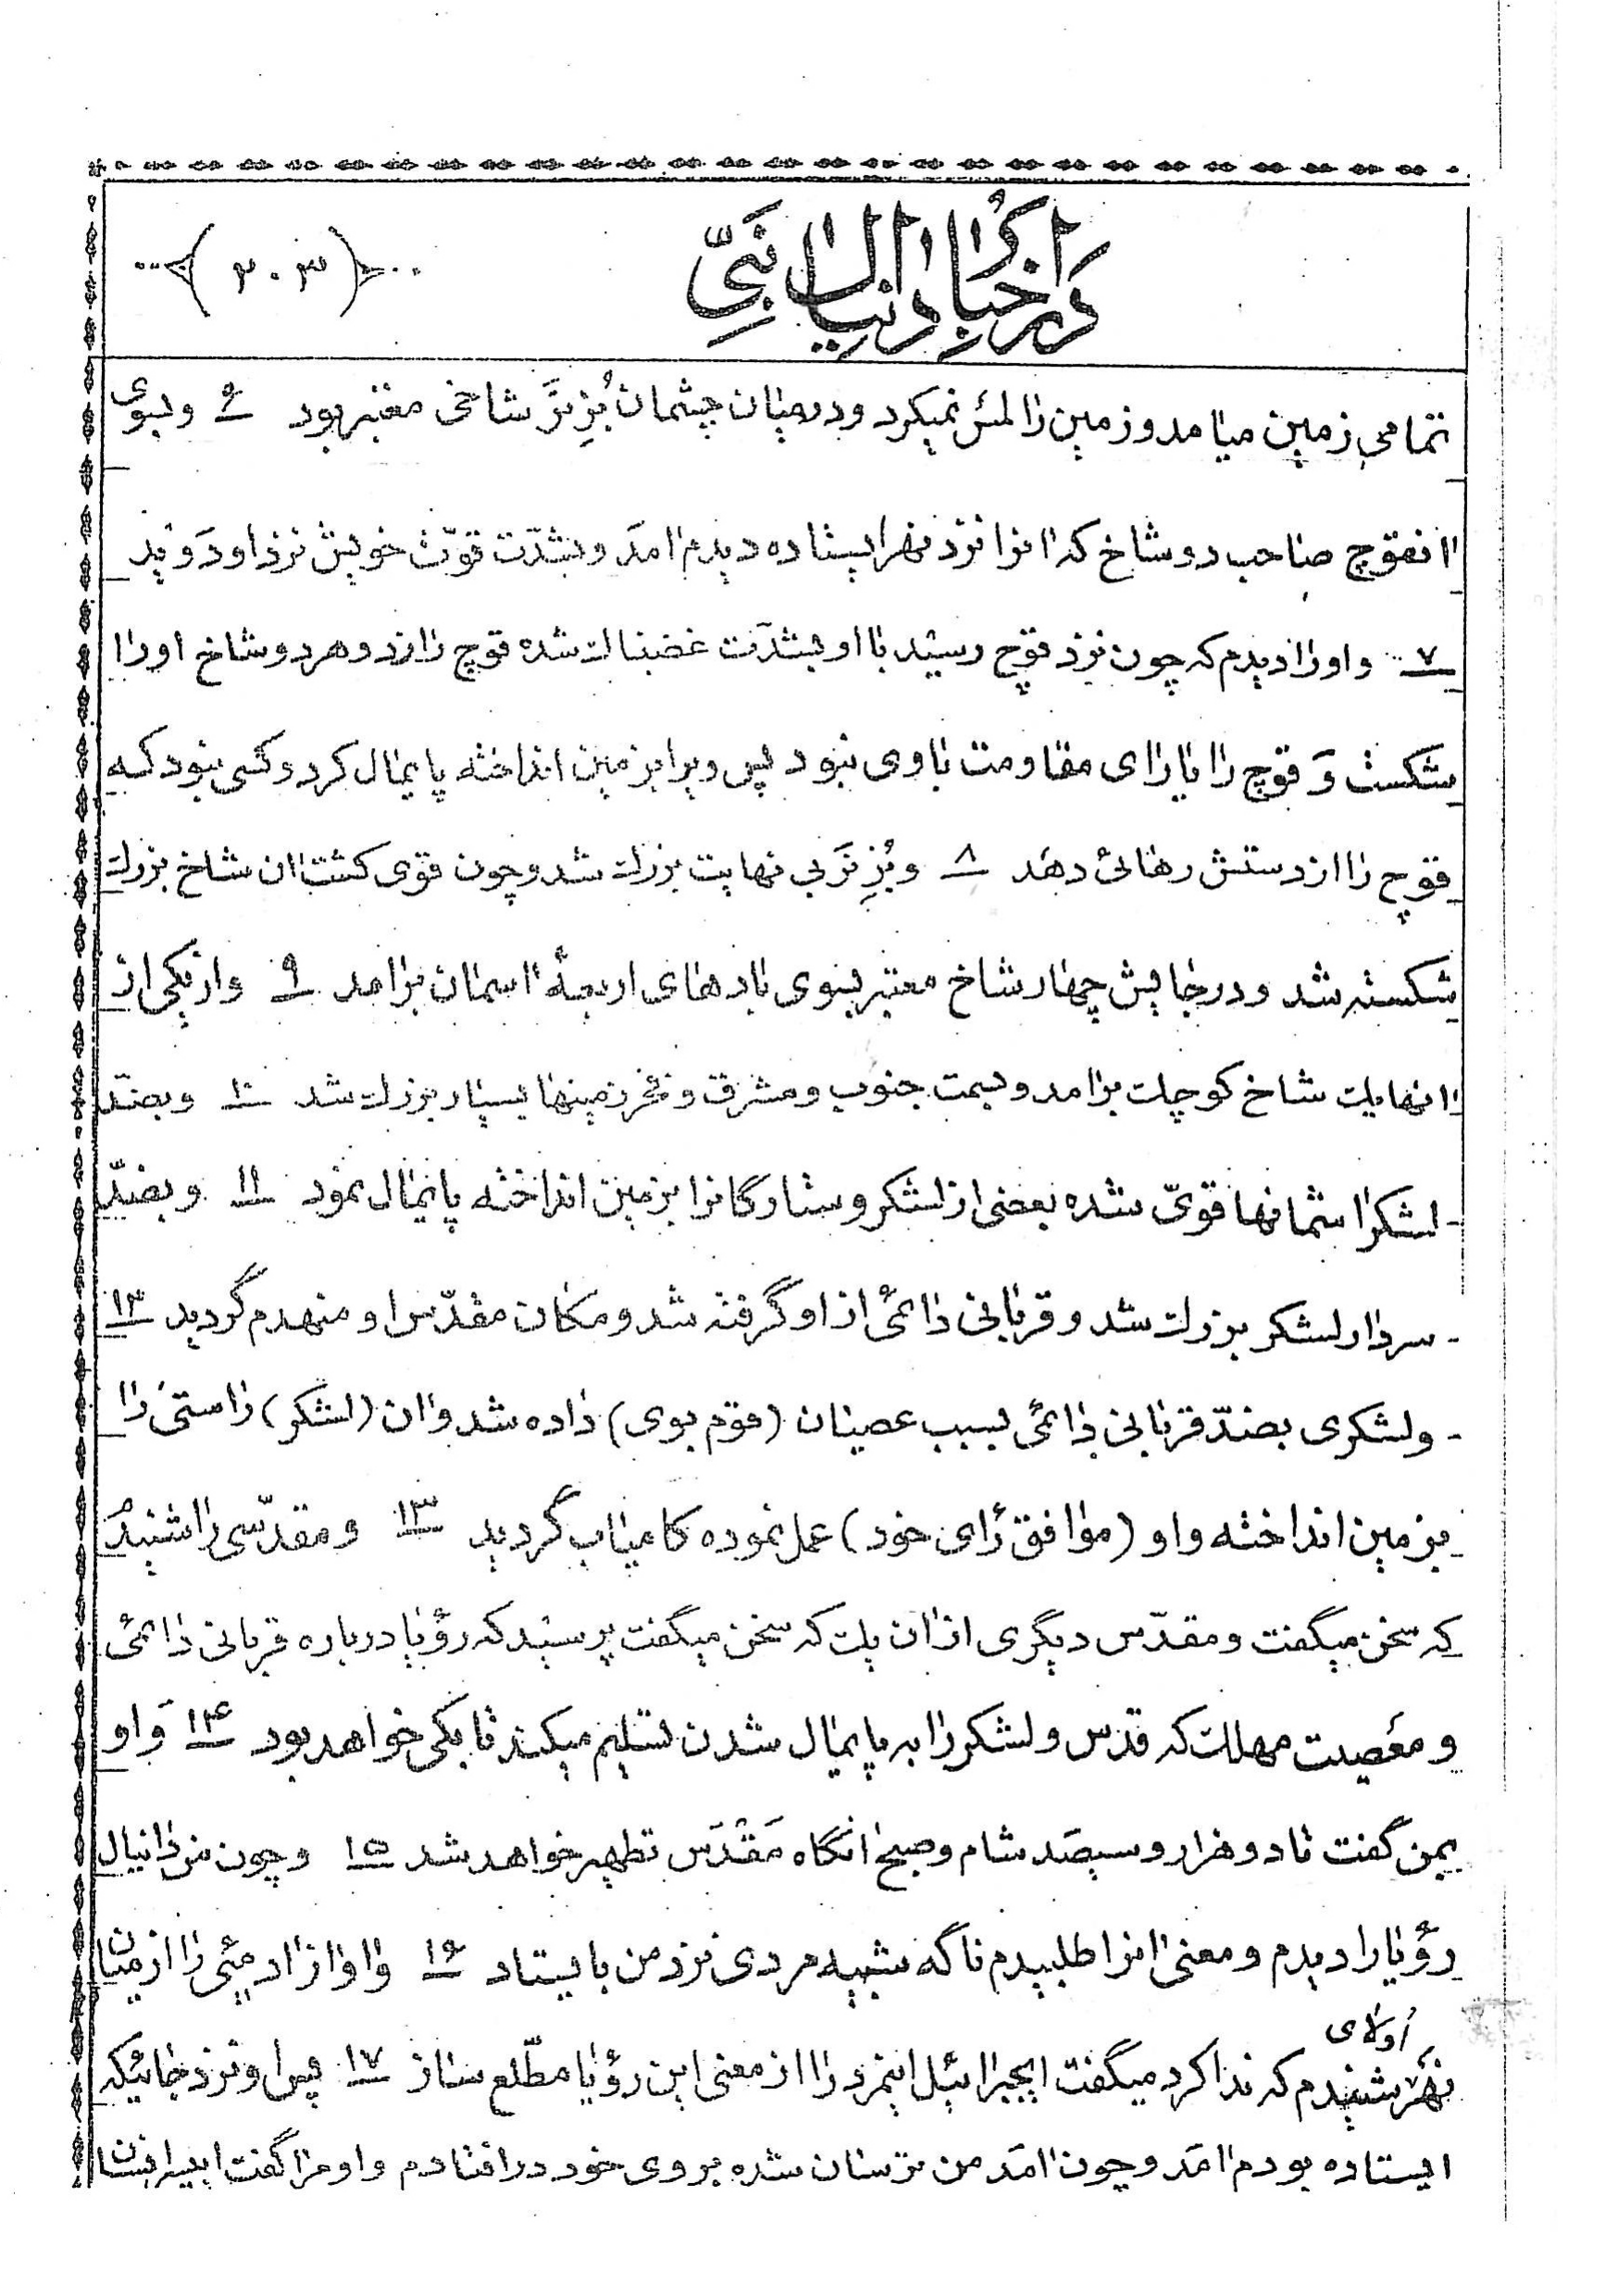 در اخبار دانیال نبیّ
(۲۰۳)
تمامی زمین میامد و زمین را لمس نمیکرد و در میان چشمان بُزِ نَر شاخی معتبر بود ۶ و بسوی
انقوچ صاحب دو شاخ که انرا نزد نهر ایستاده دیدم امَد و بشدّت قوّت خویش نزد او دَوید
۷ و او را دیدم که چون نزد قوچ رسید با او بشدّت غضبناك شده قوچ را زد و هر دو شاخ او را
شکست وَ قوچ را یارای مقاومت با وی نبود پس ویرا بزمین انداخته پایمال کرد و کسی نبود که
قوچ را از دستش رهائی دهَد ۸ و بُزِ نَر بی نهایت بزرك شد و چون قوی کشت ان شاخ بزرك
شکسته شد و در جایش چهار شاخ معتبر بسوی بادهای اربعهٔ اسمان برامد ۹ و از یکی از
انها یك شاخ کوچك برامد و بسمت جنوب و مشرق و فخر زمینها بسیار بزرك شد ۱۰ و بضدّ
لشکر اسمانها قویّ شده بعضی از لشکر و ستارگانرا بزمین انداخته پایمال نمود ۱۱ و بضدّ
سردار لشکر بزرك شد و قربانی دائمی از او گرفته شد و مکان مقدّس او منهدم گردید ۱۲
و لشکری بضدّ قربانی دائمی بسبب عصیان (قوم بوی) داده شد و ان (لشکر) راستی را
بزمین انداخته و او (موافق رَای خود) عمل نموده کامیاب گردید ۱۳ و مقدّسی را شنیدمُ
که سخن میگفت و مقدّس دیگری از ان یك که سخن میگفت پرسید که رؤیا درباره قربانی دائمی
و معَصیت مهلك که قدس و لشکر را به پایمال شدن تسلیم میکند تا بکی خواهد بود ۱۴ وَ او
بمن گفت تا دو هزار و سیصَد شام و صبح انگاه مَقْدَس تطهیر خواهد شد ۱۵ و چون من دانیال
رؤیا را دیدم و معنی انرا طلبیدم ناگه شبیه مردی نزد من بایستاد ۱۶ و اواز ادمئی را از میان
اُولای
نهر شنیدم که ندا کرد میگفت ایجبرائیل اینمرد را از معنی این رؤیا مطّلع ساز ۱۷ پس او نزد جائیکه
ایستاده بودم امَد و چون امَد من ترسان شده بروی خود درافتادم و او مرا گفت ایپسر انسان